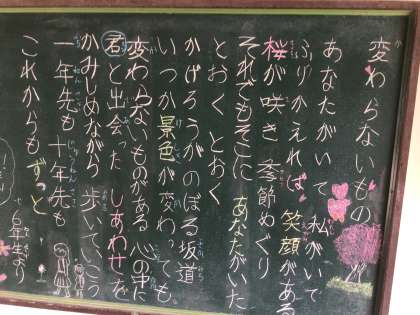 変わらないもの
あなたがいて 私がいて
ふりかえれば 笑顔がある
桜が咲き 季節めぐり
それでもそこに あなたがいた
とおく とおく
かげろうがのぼる坂道
いつか景色が変わっても
変わらないものがある 心の中に
君と出会った しあわせを
かみしめながら 歩いていこう
一年先も 十年先も
これからも ずっと
6年生より